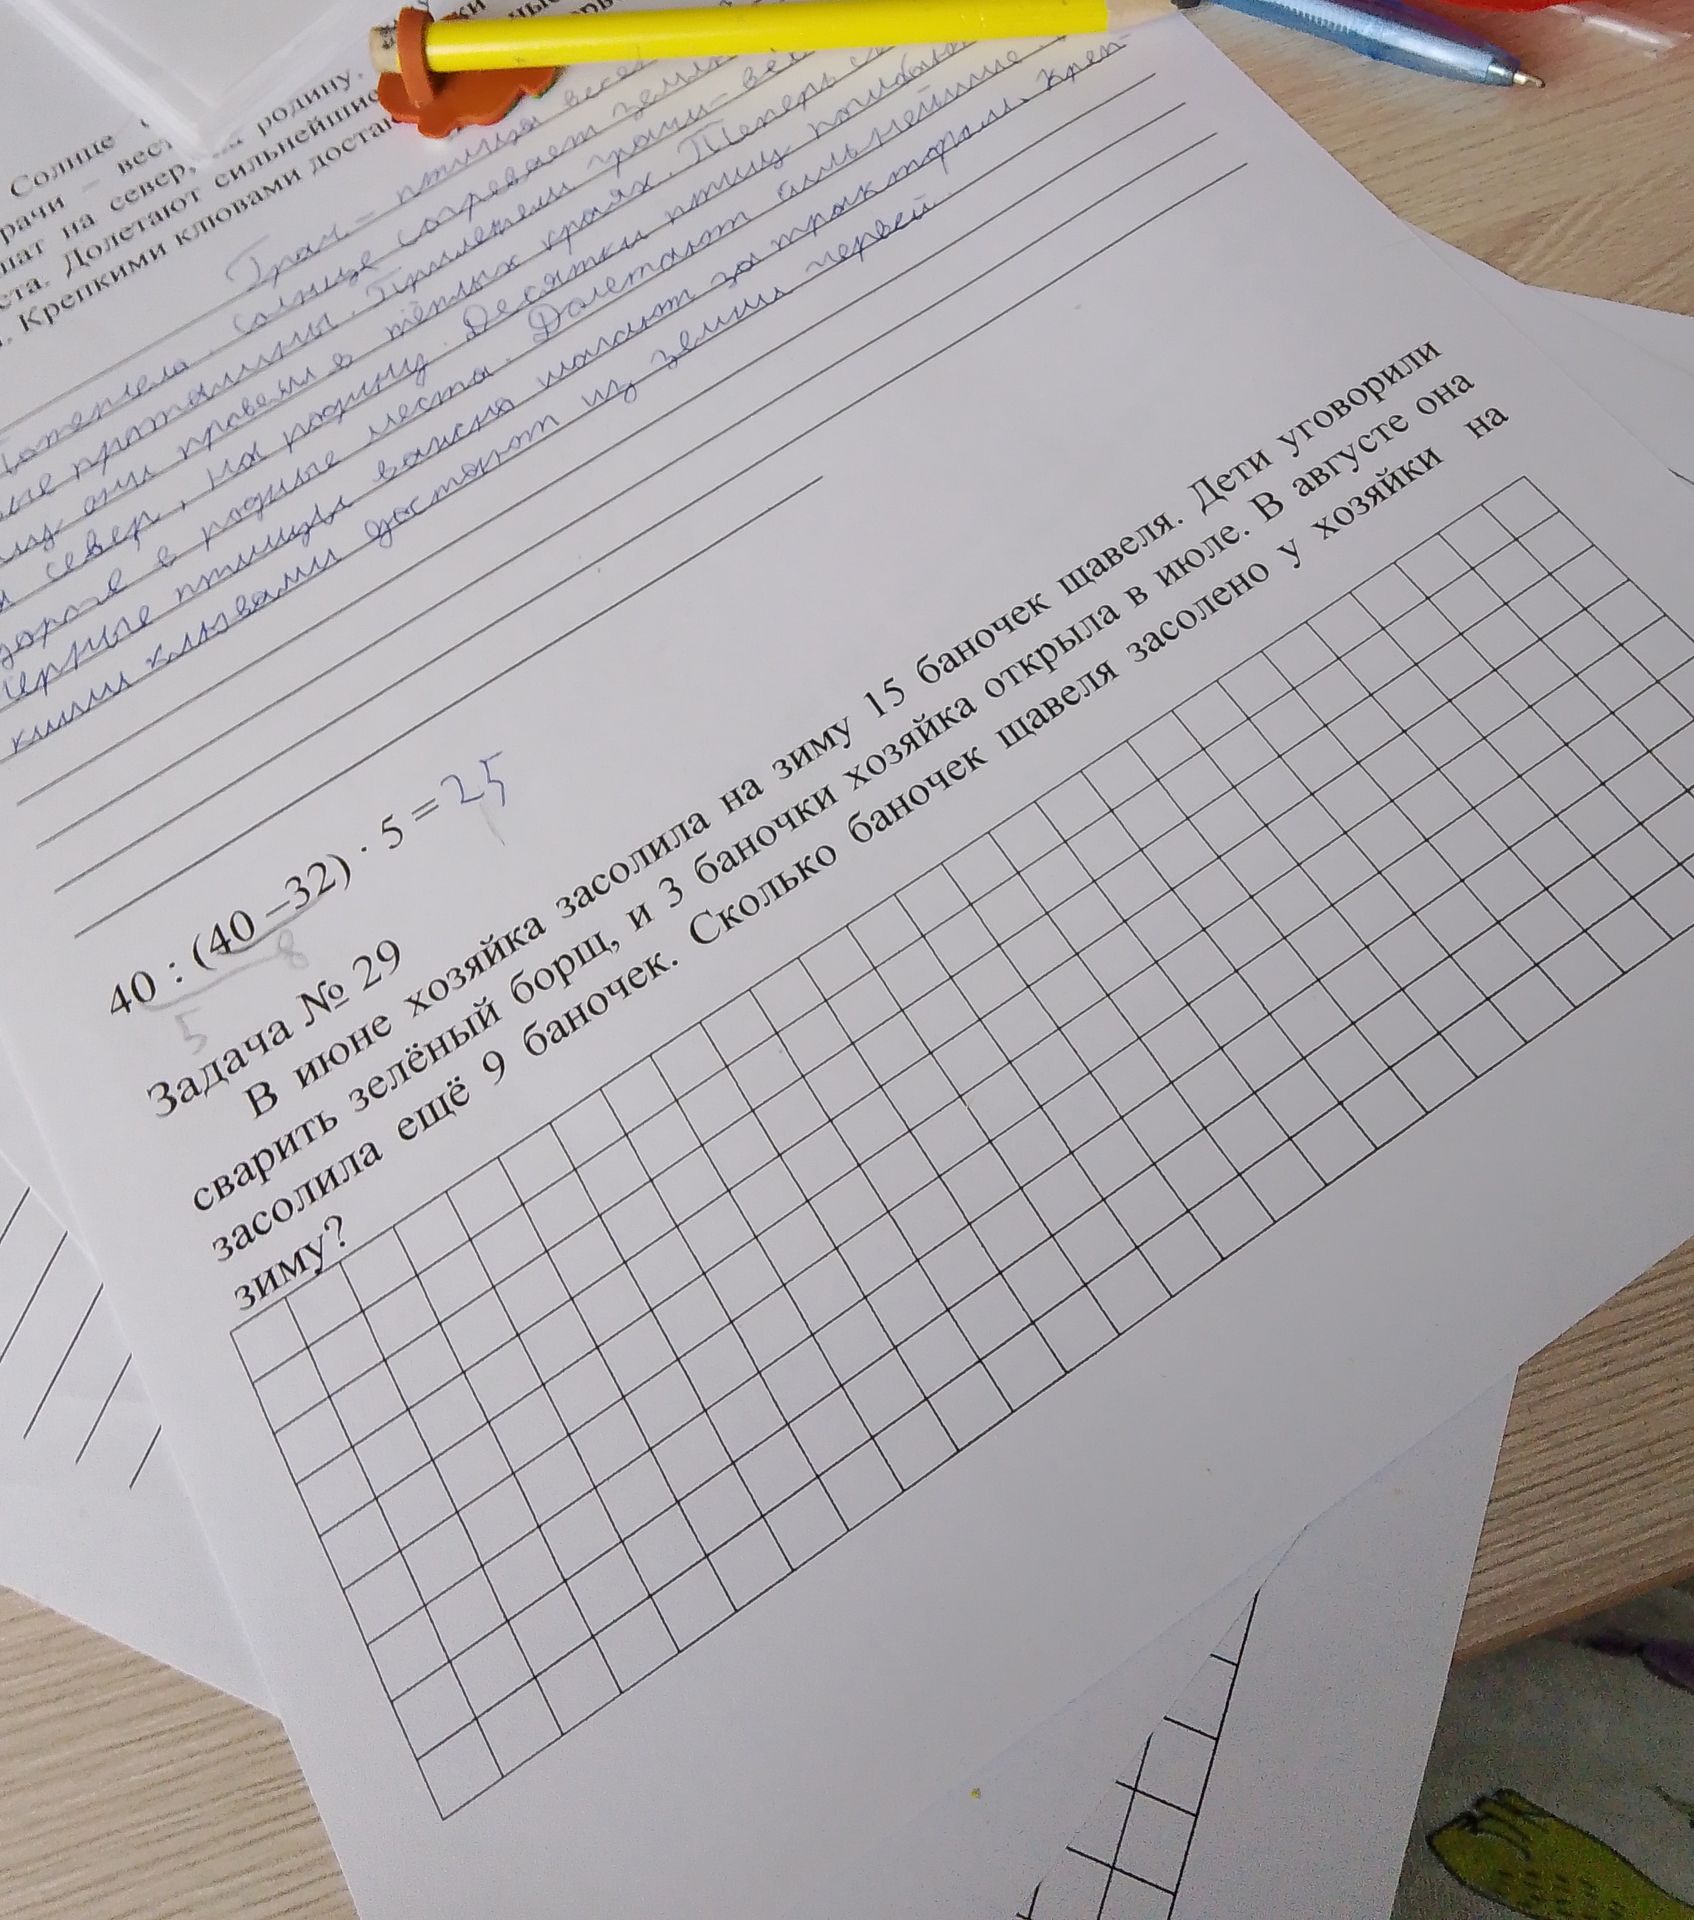 Солнце
рачи – вест
шат на север, родину.
ета. Долетают сильнейшие
. Крепкими клювами достаю
Грач – птица весен
солнце согревает землю
ые проталины. Прилетели грачи – вес
зиму они провели в тёплых краях. Теперь
север, на родину. Десятки птиц погибают
дороге в родные места. Долетают сильнейшие.
Чёрные птицы важно шагают за трактором. Креп-
кими клювами достают из земли червей.
40 : (40 – 32) · 5 = 25
8
5
Задача № 29
В июне хозяйка засолила на зиму 15 баночек щавеля. Дети уговорили
сварить зелёный борщ, и 3 баночки хозяйка открыла в июле. В августе она
засолила ещё 9 баночек. Сколько баночек щавеля засолено у хозяйки на
зиму?